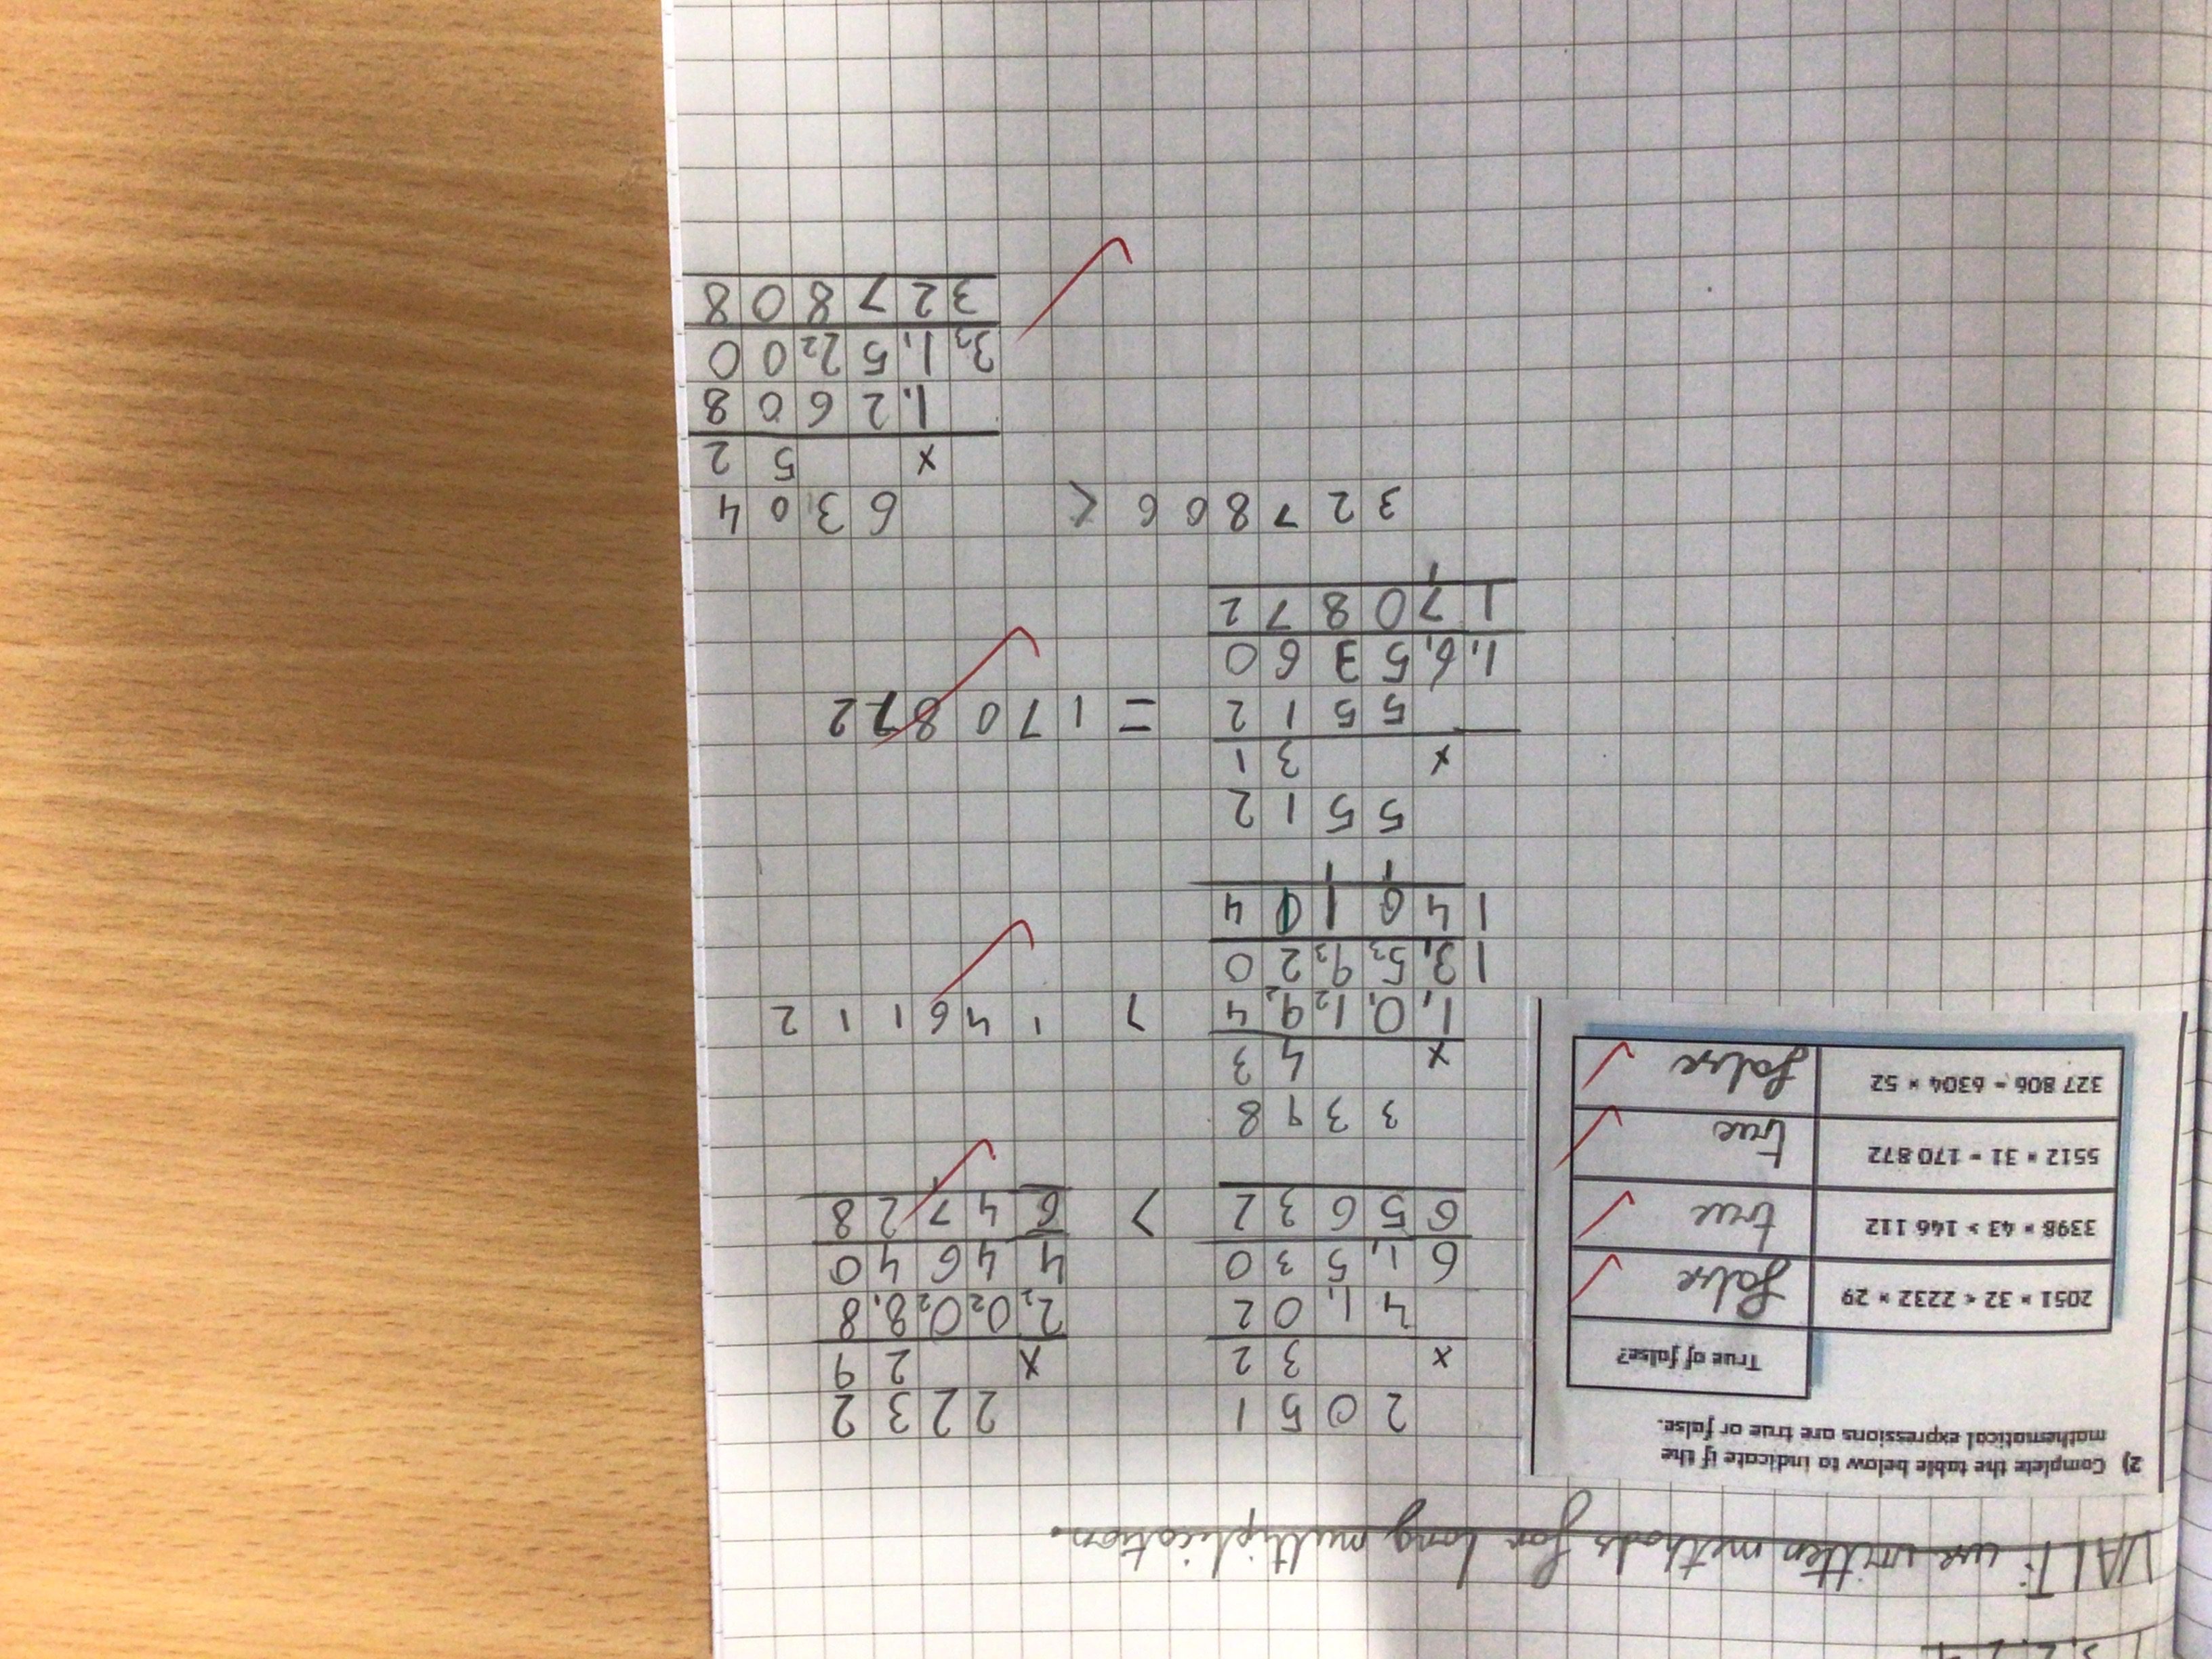 WALT: use written methods for long multiplication.
2) Complete the table below to indicate if the
mathematical expressions are true or false.
True of false?
2051 × 32 < 2232 × 29 false
3398 × 43 > 146 112 true
5512 × 31 = 170 872 true
327 806 = 6304 × 52 false
2051 2232
× 32 × 29
4102 20088
61530 44640
65632 > 64728
3398
× 43
10194 > 146112
135920
146114
5512
× 31
5512 = 170872
165360
170872
327806 < 6304
× 52
12608
315200
327808